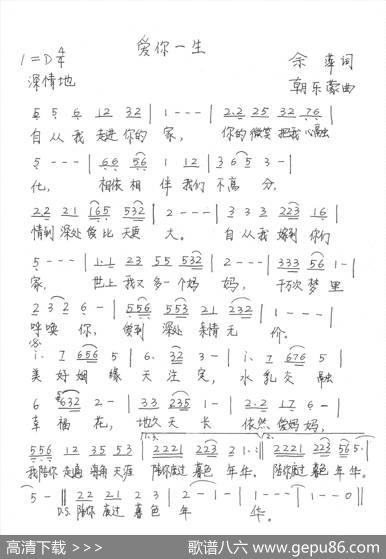 爱你一生
1=D 4/4
余萍词
深情地
朝乐蒙曲
5 5 6 12 32 | 1 - - - | 2.2 25 32 76 |
自从我走进你的家, 你的微笑把我心融
5 - - - | 66 56 1 12 | 3 6 5 3 - |
化, 相依相伴我们不离分,
22 21 165 532 | 2 - - - | 3 3 3 223 16 |
情到深处爱比天更大。 自从我嫁到你们
5 - - - | 1.1 23 55 532 | 2 - - - | 333 56 1 - |
家, 世上我又多一个妈妈, 千万次梦里
2 3 2 6 - | 556 553 21 232 | 1 - - - |
呼唤你, 爱到深处亲情无价。
i. 7 656 5 | 6. 32 3 - | i. 7 676 5 |
美好姻缘天注定, 水乳交融
6 632 2 - | 33 235 1 - | 2.2 17 6 - |
幸福花, 地久天长 依然爱妈妈,
556 12 35 53 | 2221 223 21 :|| 2221 223 56 5 |
我陪你走遍海角天涯 陪你度过暮色年华。 陪你度过暮色年华。
5 - || 22 21 2 3 | 2 - 1 - | 1 - - - | 1 - - 0 ||
D.S. 陪你度过暮色年华。
高清下载 >>>
歌谱八六 www.gepu86.com